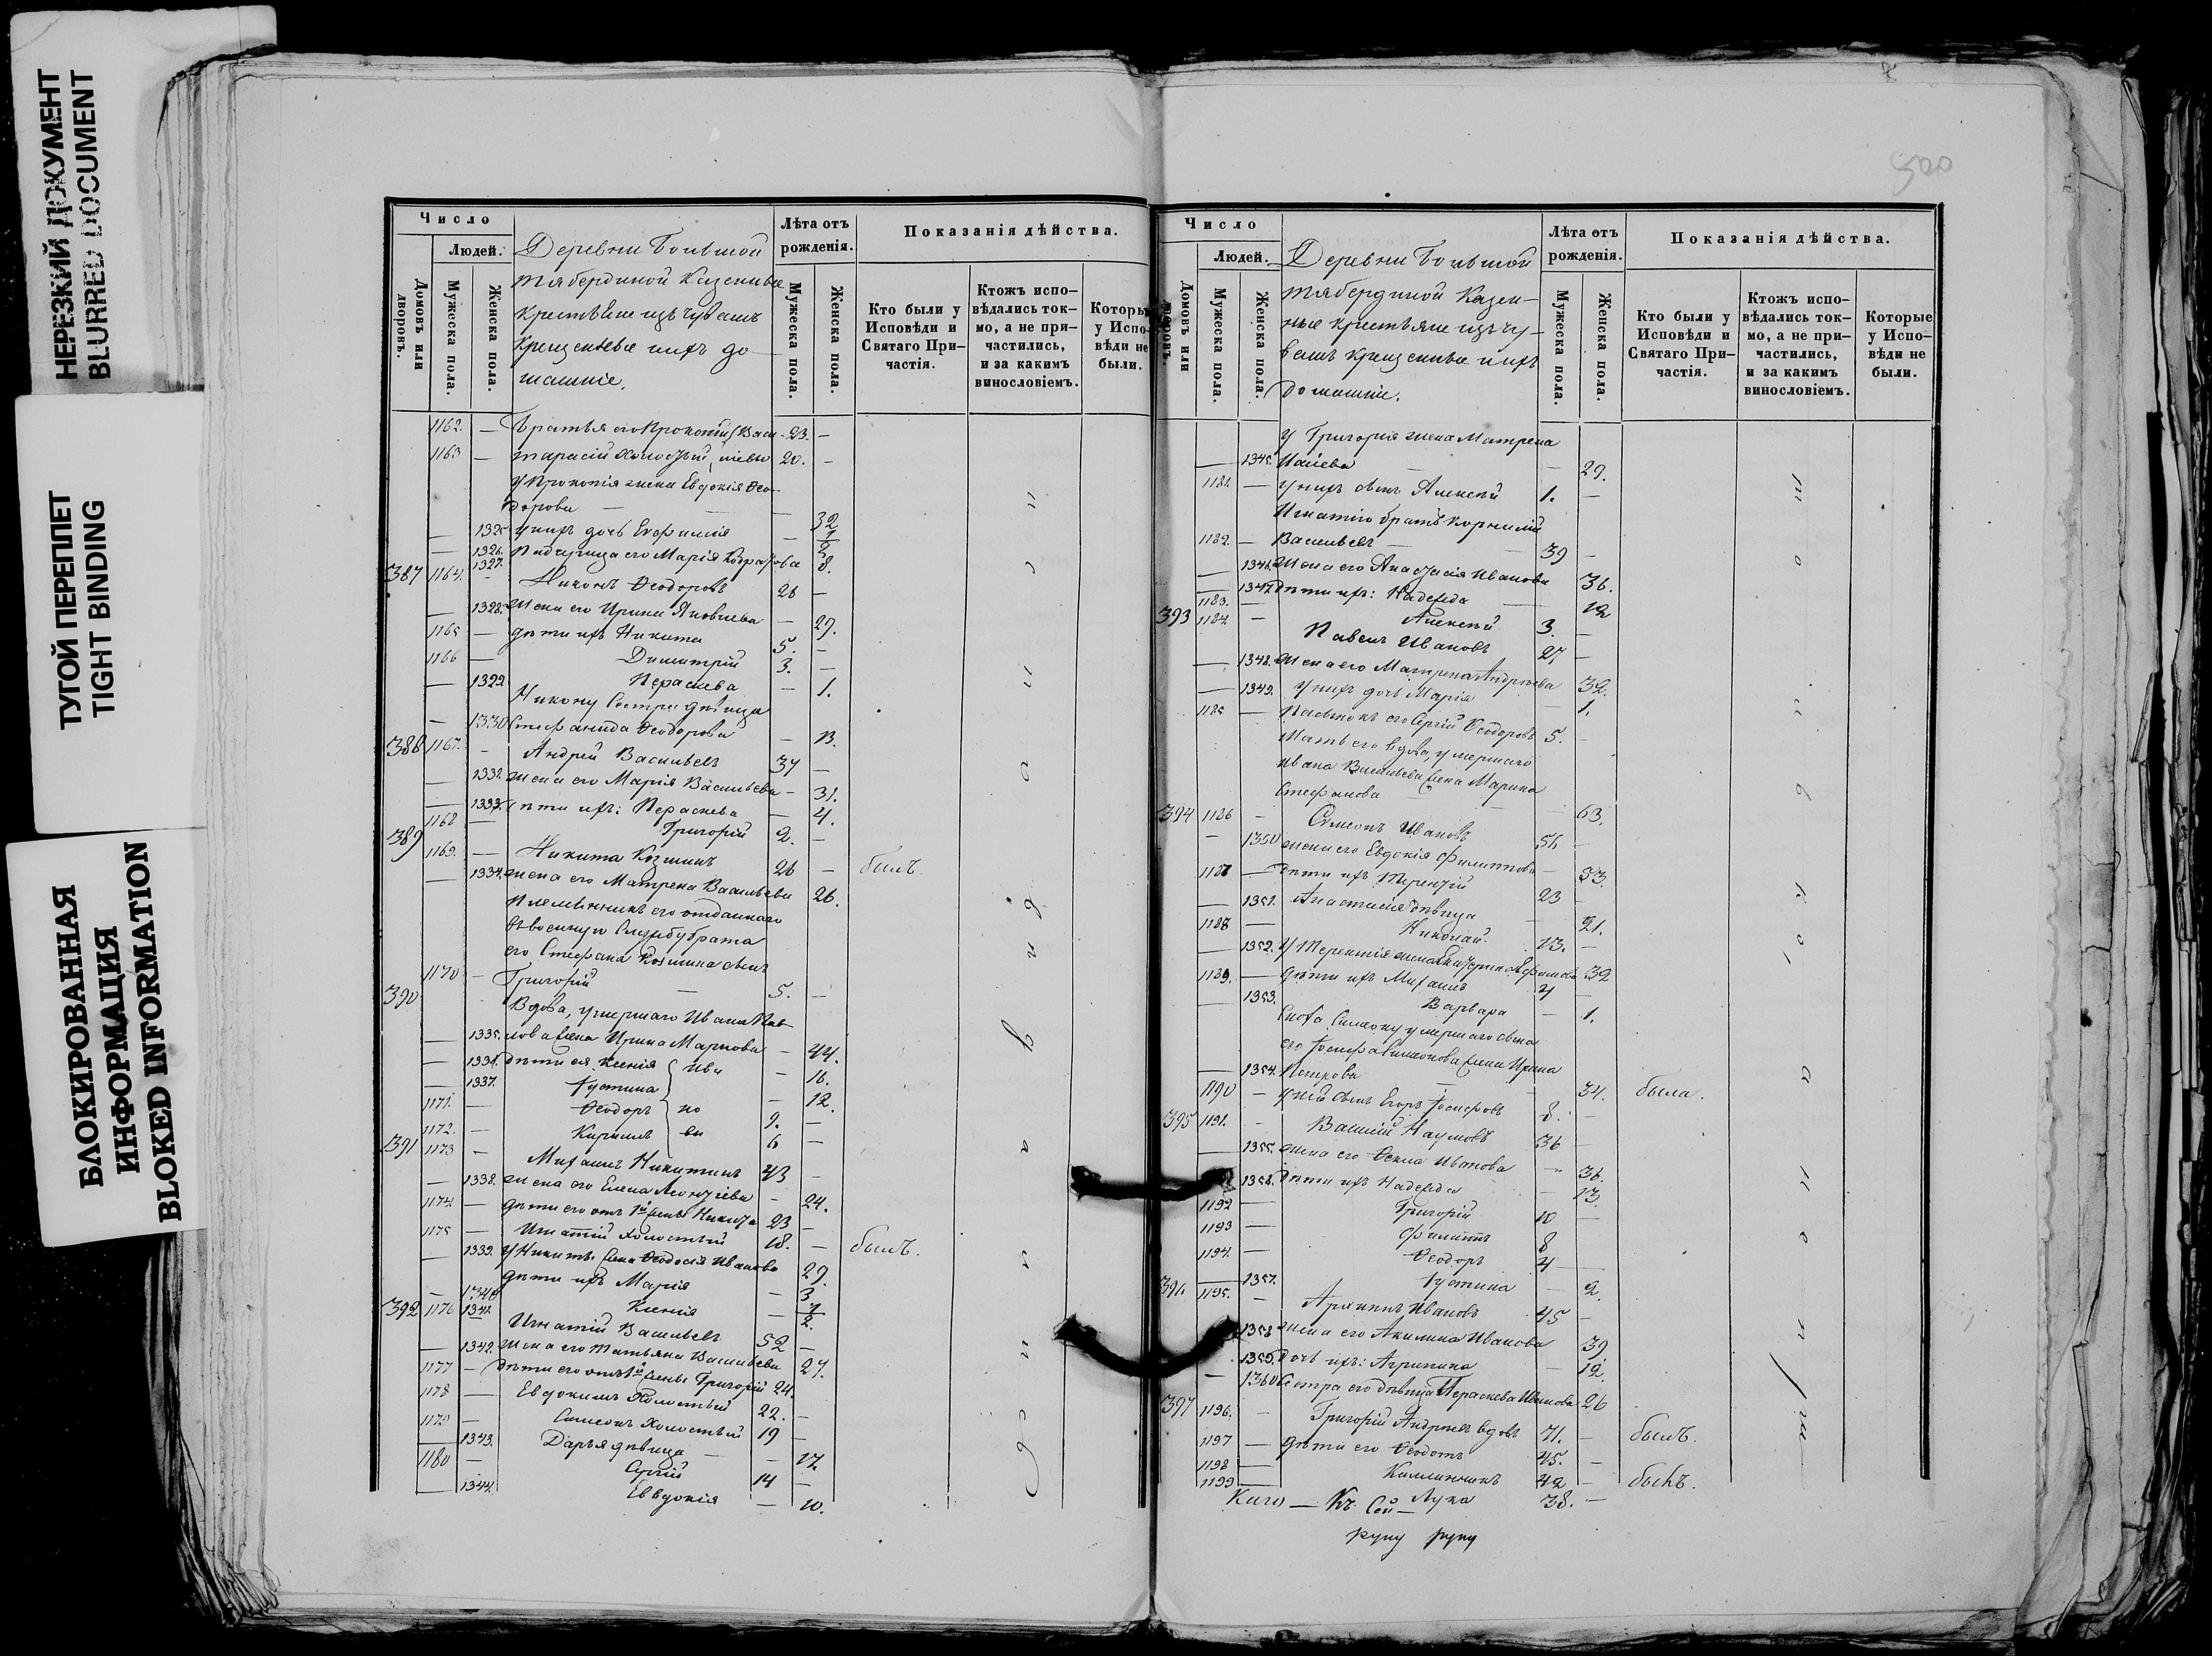 НЕРЕЗКИЙ ДОКУМЕНТ
BLURRED DOCUMENT
ТУГОЙ ПЕРЕПЛЕТ
TIGHT BINDING
БЛОКИРОВАННАЯ
ИНФОРМАЦИЯ
BLOKED INFORMATION
Число
Людей.
Домовъ или дворовъ.
Мужеска пола.
Женска пола.
Деревни Большой
Тябердиной Казенные
Крестьяне изъ Чувашъ
Крещеные ихъ до
машніе.
Лѣта отъ рожденія.
Мужеска пола.
Женска пола.
Показанія дѣйства.
Кто были у Исповѣди и Святаго Причастія.
Ктожъ исповѣдались токмо, а не причастились, и за какимъ винословіемъ.
Которые у Исповѣди не были.
1162. — Братья его Прокопій 23. —
1163 — Тарасій холостый 20. —
У Прокопія жена Евдокія Ѳео-
дорова — 32
1325 у нихъ дочь Евфимія
1326. Падчерица его Марія
1327. 8.
387 1164. — Никонъ Ѳеодоровъ 28 —
— 1328. жена его Ирина Яковлева — 29.
1165 — дѣти ихъ Никита 5. —
1166 — Димитрій 3. —
— 1329 Параскева — 1.
Никону Сестра дѣвица
— 1330 Стефанида Ѳеодорова — 13.
388 1167. — Андрей Васильевъ 34 —
— 1332. жена его Марія Васильева — 31.
— 1333. дѣти ихъ: Параскева — 4.
1168 — Григорій 2. —
389 1169. — Никита Козминъ 26 — былъ.
— 1334. жена его Матрена Васильева 26.
Племянникъ его отданнаго
въ военную Службу брата
его Стефана Козмина сынъ
1170 — Григорій — 5. —
390 Вдова, умершаго Ивана Пав-
— 1335. лова жена Ирина Маркова — 44.
— 1336. дѣти ея Ксенія } Ива — 16.
— 1337. Іустина — 12.
1171. — Ѳеодоръ } но 9. —
1172. — Кириллъ } вы 6 —
391 1173 — Михаилъ Никитинъ 43 —
— 1338. жена его Елена Леонтіева — 24.
1174 — дѣти его отъ 1й жены Никита 23 —
1175 — Игнатій Холостый 18. — былъ.
— 1339. У Никиты жена Ѳеодосія Иванова 29.
дѣти ихъ Марія — 3
— 1340
1341. Ксенія — 2.
392 1176 Игнатій Васильевъ 52 —
— 1342. Жена его Татьяна Васильева 27.
1177 — Дѣти его отъ 1й жены Григорій 24.
1178 — Евдокимъ Холостый 22. —
1179 — Симеонъ Холостый 19 —
— 1343. Дарья дѣвица — 17.
1180 — Сергій 14 —
— 1344. Евдокія — 10.
500
Число
Людей.
Домовъ или дворовъ.
Мужеска пола.
Женска пола.
Деревни Большой
Тябердиной Казен-
ные крестьяне изъ Чу-
вашъ крещеные и ихъ
домашніе.
Лѣта отъ рожденія.
Мужеска пола.
Женска пола.
Показанія дѣйства.
Кто были у Исповѣди и Святаго Причастія.
Ктожъ исповѣдались токмо, а не причастились, и за какимъ винословіемъ.
Которые у Исповѣди не были.
У Григорія жена Матрена
— 1345. Исаева — 29.
1181. — у нихъ сынъ Алексѣй 1. —
Игнатію братъ Корнилій
1182. — Васильевъ — 39 —
— 1346. Жена его Анастасія Иванова 36.
— 1347. Дѣти ихъ: Надежда — 12
1183. — Алексѣй 3. —
393 1184 — Павелъ Ивановъ 27 —
— 1348. жена его Матрена Андреева 32.
— 1349. у нихъ дочь Марія — 1.
1185 — Пасынокъ его Сергій Ѳеодоровъ 5. —
Мать его вдова, умершаго
Ивана Васильева жена Марина
Стефанова — 63.
394 1186 — Симеонъ Ивановъ 56 —
— 1350 жена его Евдокія Филиппова — 53.
1187 — Дѣти ихъ Терентій 23 —
— 1351. Анастасія дѣвица — 21.
1188 — Николай 13. —
— 1352. У Терентія жена 32
1189. — дѣти ихъ Михаилъ 4 —
— 1353. Варвара — 1.
Сноха Симеону умершаго сына
его Іосифа Симеонова жена Ирина
— 1354. Петрова — 34. была.
1190 — у ней сынъ Егоръ Іосифовъ 8. —
395 1191. — Василій Наумовъ 36 —
— 1355. жена его Ѳекла Иванова — 36.
1356. Дѣти ихъ Надежда — 13.
1192 — Григорій 10 —
1193 — Филиппъ 8
1194. — Ѳеодоръ 4 —
— 1357. Іустина — 2.
396. 1195. — Архиппъ Ивановъ 45 —
1358 Жена его Акилина Иванова 39
1359. Дочь ихъ: Агрипина — 12.
— 1360 Сестра его дѣвица Параскева Иванова 26
397 1196. — Григорій Андреевъ вдовъ 71. — былъ.
1197 — дѣти его Ѳеодотъ 45. —
1198 — Каллинникъ 42 — былъ.
1199 — Лука 38. —
Сей
руку руку